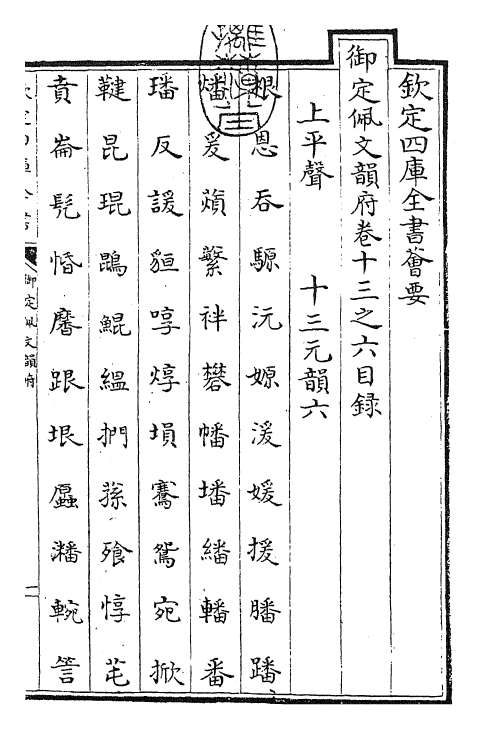 欽定四庫全書薈要
御定佩文韻府卷十三之六目錄
上平聲　　十三元韻六
根恩吞騵沅嫄湲媛援膰蹯
燔爰蘋蘩袢礬幡墦繙轓番
璠反諼貆啍焞塤騫鴛宛掀
鞬昆琨鵾鯤縕捫蓀飱惇芚
賁崙髡惛黁跟垠𧖅瀊輓箮
御定佩文韻府